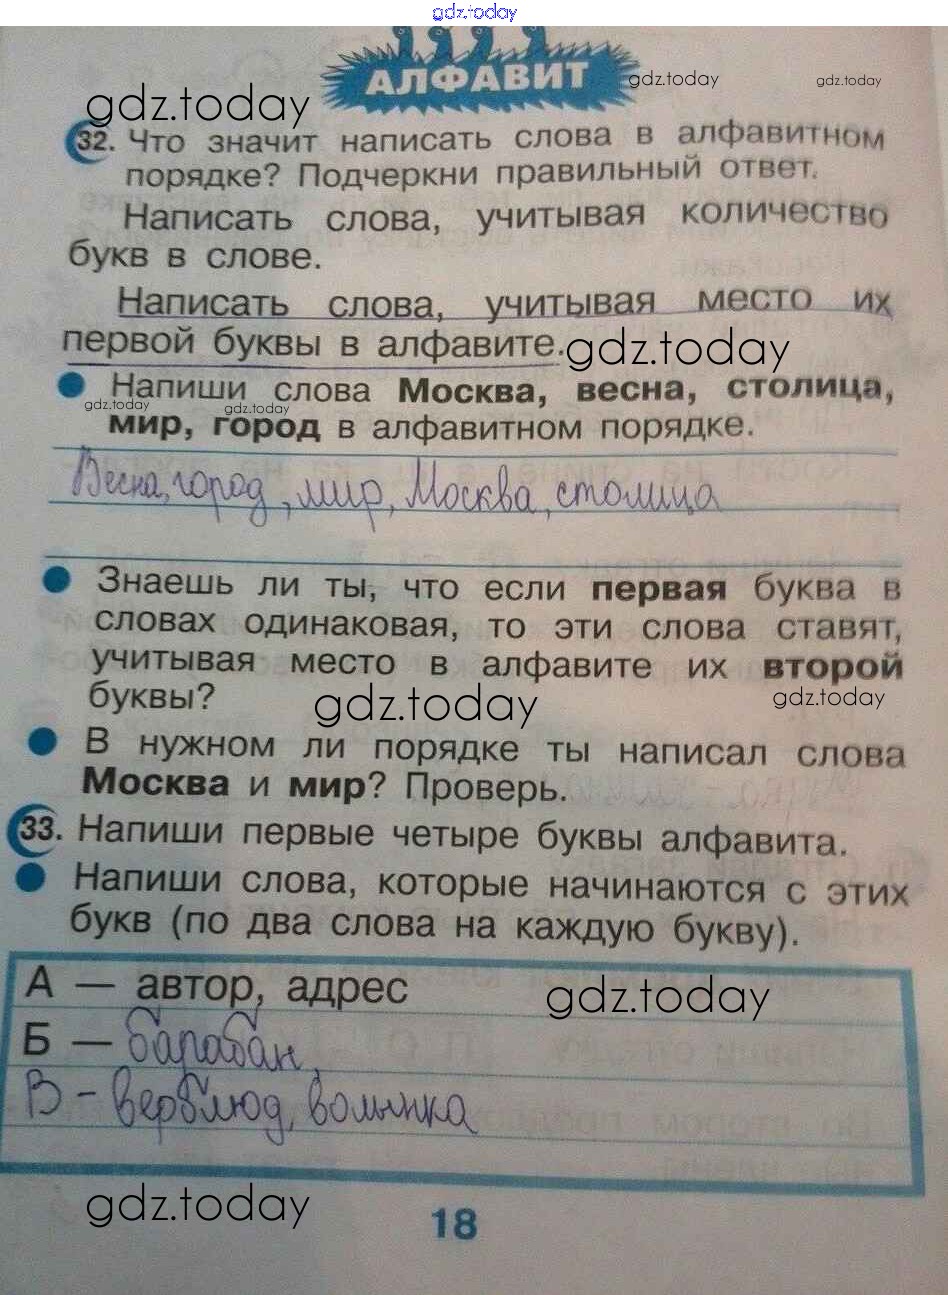 gdz.today
АЛФАВИТ
gdz.today
gdz.today
gdz.today
32. Что значит написать слова в алфавитном
порядке? Подчеркни правильный ответ.
Написать слова, учитывая количество
букв в слове.
Написать слова, учитывая место их
первой буквы в алфавите.
gdz.today
Напиши слова Москва, весна, столица,
gdz.today
gdz.today
мир, город в алфавитном порядке.
Весна, город, мир, Москва, столица
Знаешь ли ты, что если первая буква в
словах одинаковая, то эти слова ставят,
учитывая место в алфавите их второй
буквы?
gdz.today
gdz.today
В нужном ли порядке ты написал слова
Москва и мир? Проверь.
33. Напиши первые четыре буквы алфавита.
Напиши слова, которые начинаются с этих
букв (по два слова на каждую букву).
А — автор, адрес
gdz.today
Б — барабан,
В - верблюд, волынка
gdz.today
18